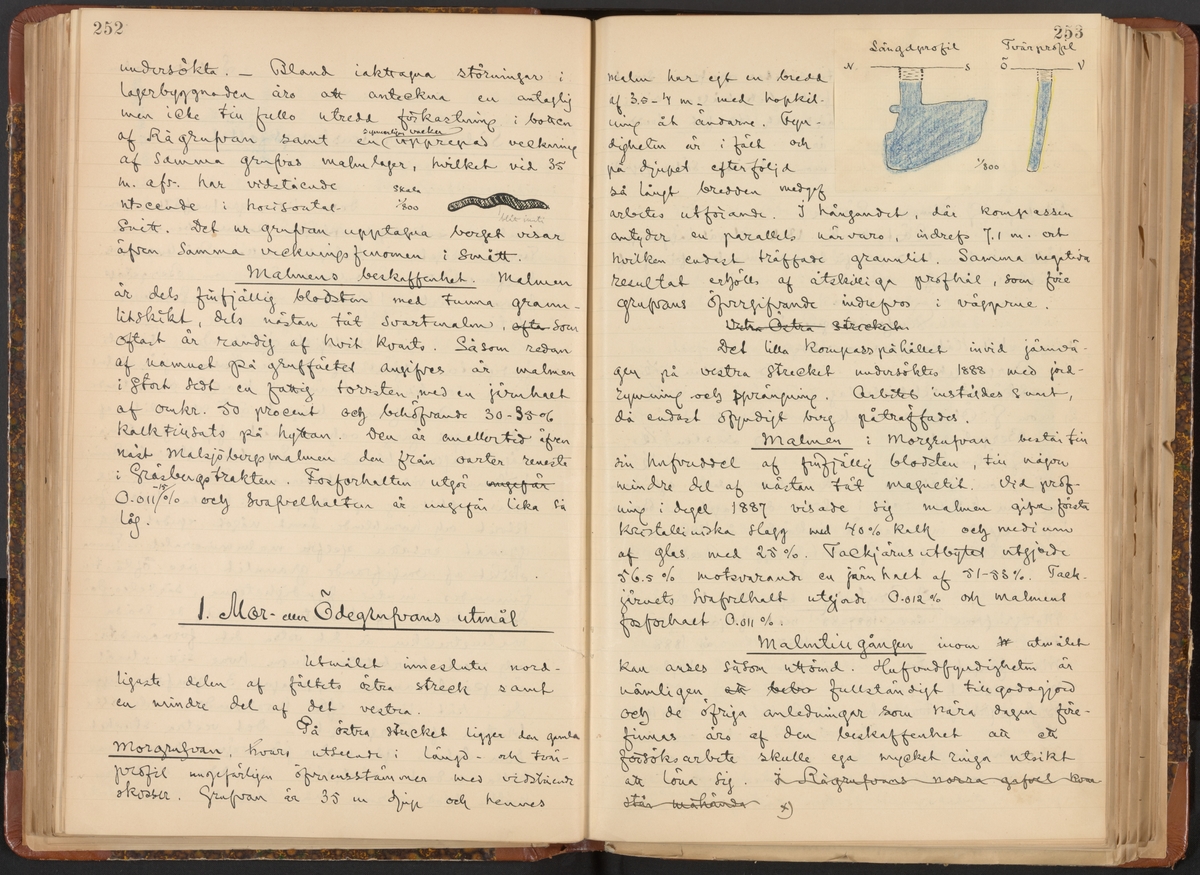 252
undersökta. — Bland iakttagna störningar i
lagerbyggnaden äro att anteckna en antaglig
men icke till fullo utredd förkastning i botten
af Rågrufvan samt en upprepad veckning
af samma grufvas malmlager, hvilket vid 35
m. afv. har vidstående
utseende i horisontal-
Skala
1/800
snitt. Det ur grufvan upptagna berget visar
äfven samma veckningsfenomen i smått.
Malmens beskaffenhet. Malmen
är dels finfjällig blodsten med tunna granu-
litskikt, dels nästan tät svartmalm, ofta som
oftast är randig af hvit kvarts. Såsom redan
af namnet på gruffältet angifves är malmen
i stort sedt en fattig torrsten med en järnhalt
af omkr. 50 procent och behöfvande 30-35%
kalktillsats på hyttan. Den är emellertid äfven
näst Malsjöbergsmalmen den från oarter renaste
i Gräsbergstrakten. Fosforhalten utgör ungefär
0.011% och svafvelhalten är ungefär lika så
låg.
1. Mor- eller Ödegrufvans utmål
Utmålet innesluter nord-
ligaste delen af fältets östra streck samt
en mindre del af det vestra.
På östra strecket ligger den gamla
Morgrufvan, hvars utseende i längd- och tvär-
profil ungefärligen öfverensstämmer med vidstående
skisser. Grufvan är 35 m djup och hennes
253
Längdprofil
N. S
Tvärprofil
Ö V
1/800
malm har egt en bredd
af 3.5-4 m. med hopkil-
ning åt ändarne. Fyn-
digheten är i fält och
på djupet efterföljd
så långt bredden medgif
arbetes utförande. I hängandet, där kompassen
antyder en parallels närvaro, indrefs 7.1 m. ort
hvilken endast träffade granulit. Samma negativa
resultat erhölls af åtskilliga profhål, som före
grufvans öfvergifvande indrefvos i väggarne.
Östra strecket.
Det lilla kompasspåhållet invid järnvä-
gen på vestra strecket undersöktes 1888 med jord-
rymning och sprängning. Arbetet inställdes snart,
då endast ofyndigt berg påträffades.
Malmen i Morgrufvan består till
sin hufvuddel af finfjällig blodsten, till någon
mindre del af nästan tät magnetit. Vid prof-
ning i degel 1887 visade sig malmen gifva första
kristalliniska slagg med 40% kalk och medium
af glas med 25%. Tackjärnsutbytet utgjorde
56.5% motsvarande en järnhalt af 51-53%. Tack-
järnets svafvelhalt utgjorde 0.012% och malmens
fosforhalt 0.011%.
Malmtillgången inom utmålet
kan anses såsom uttömd. Hufvudfyndigheten är
nämligen fullständigt tillgodogjord
och de öfriga anledningar som nära dagen före-
finnas äro af den beskaffenhet att ett
försöksarbete skulle ega mycket ringa utsikt
att löna sig. I Rågrufvans norra gafvel kvar
står måhända x)